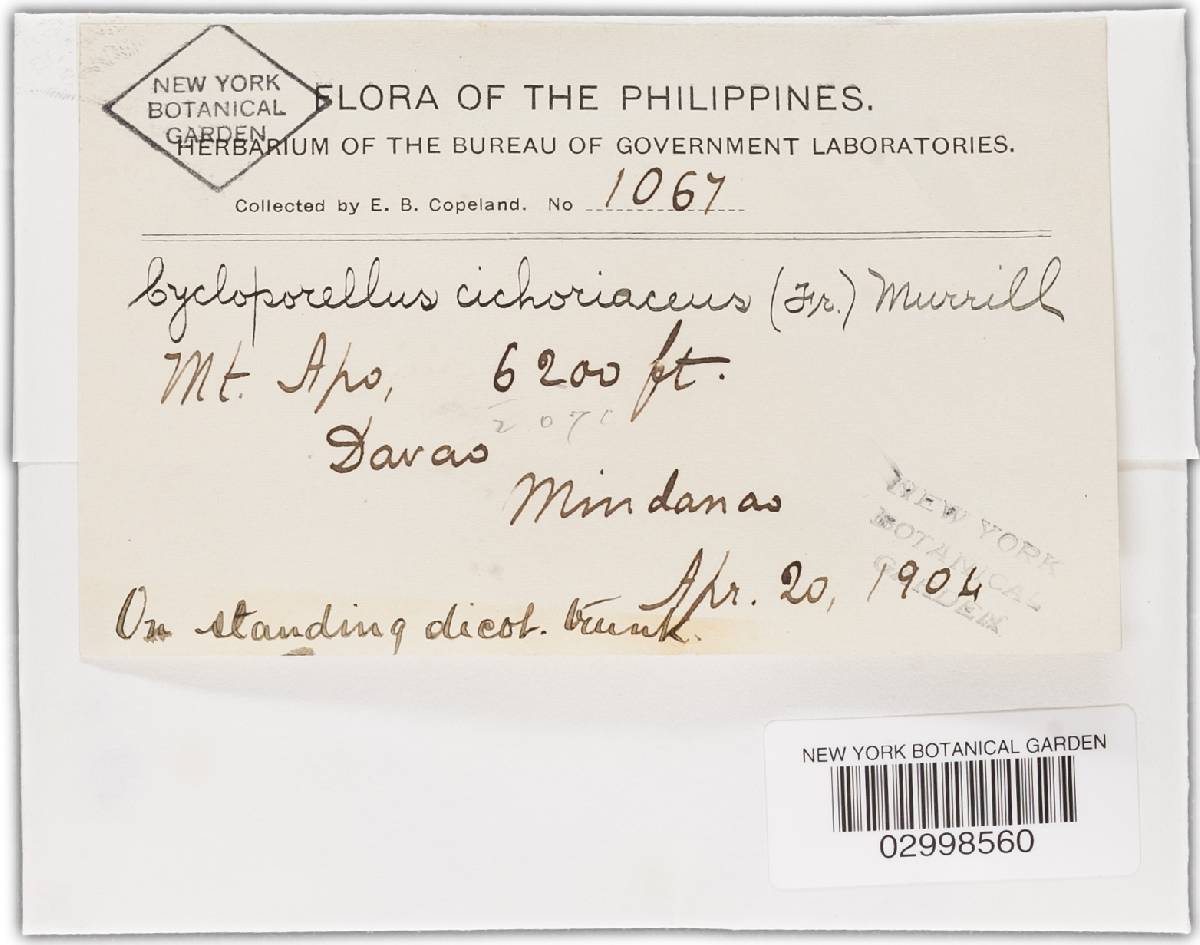 NEW YORK
BOTANICAL
GARDEN
FLORA OF THE PHILIPPINES.
HERBARIUM OF THE BUREAU OF GOVERNMENT LABORATORIES.
Collected by E. B. Copeland. No 1067
Cycloporellus cichoriaceus (Fr.) Murrill
Mt. Apo, 6200 ft.
2071
Davao
Mindanao
NEW YORK
BOTANICAL
GARDEN
Apr. 20, 1904
On standing dicot. trunk.
NEW YORK BOTANICAL GARDEN
02998560